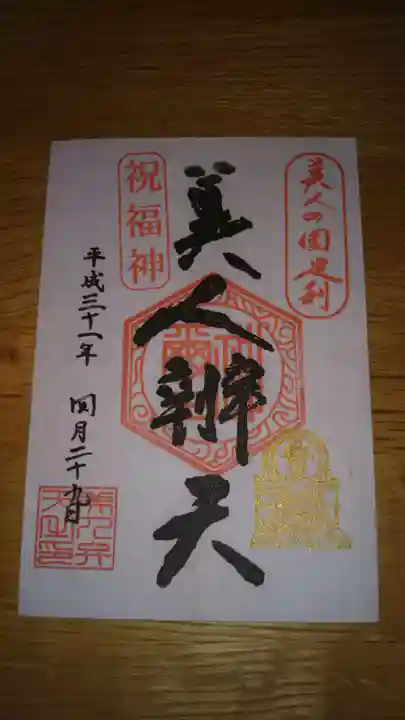 美人の国足利
美人辨天
祝福神
平成三十一年 四月二十九日
美人弁
天之印